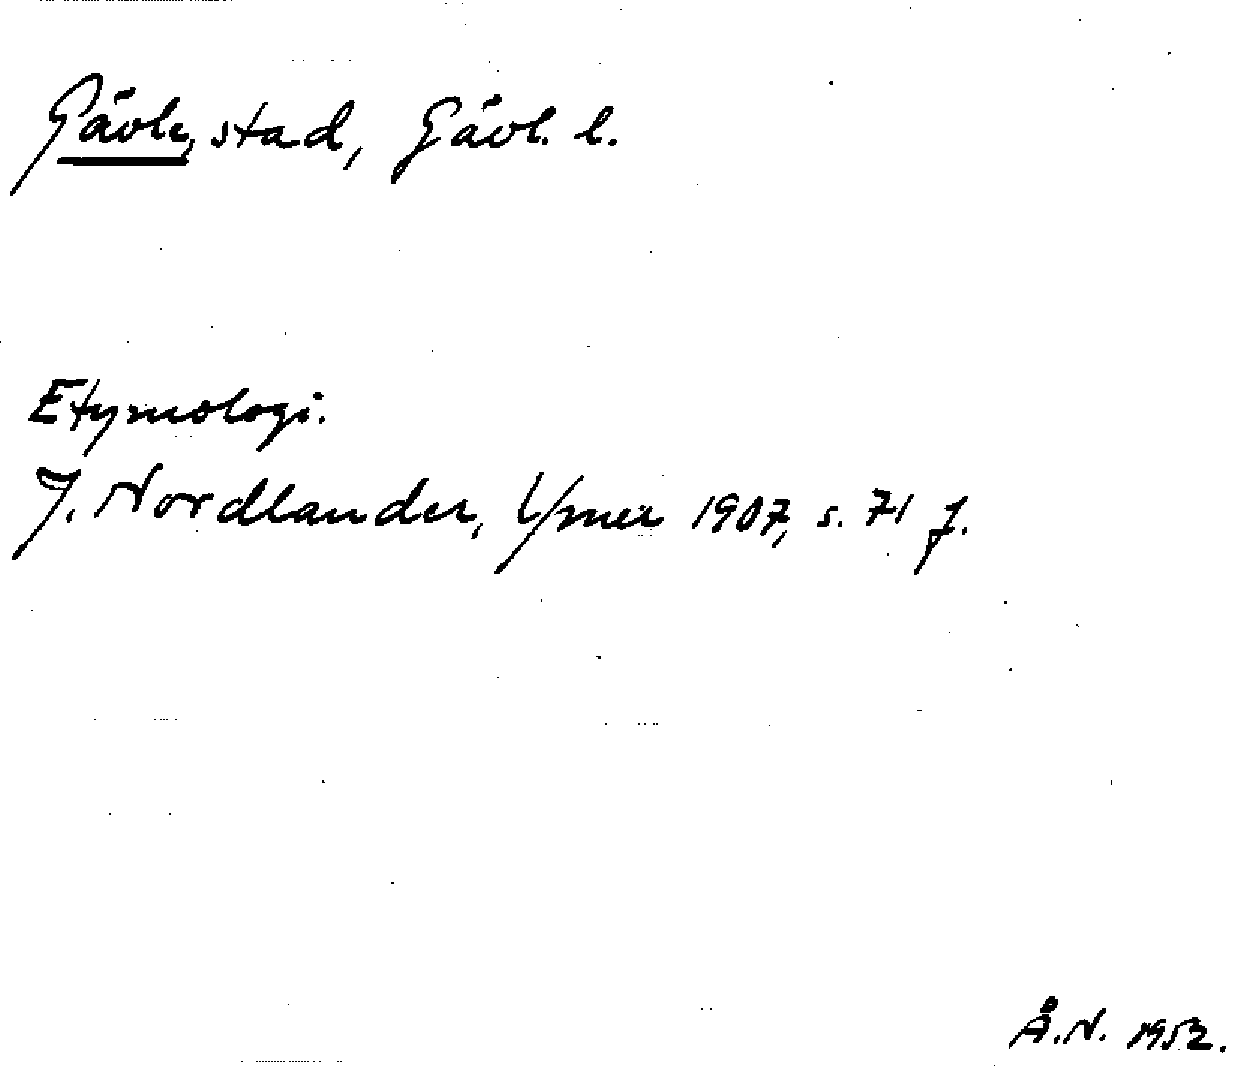 Gävle, stad, Gävl. l.
Etymologi.
J. Nordlander, Ymer 1907, s. 71 f.
Å.N. 1952.